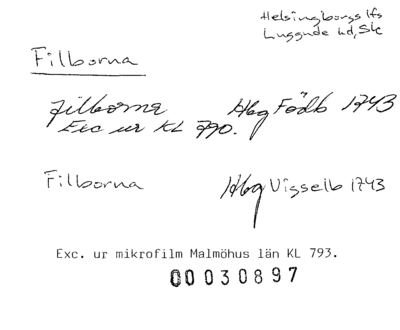 Helsingborgs lfs
Luggude hd, Sk
Filborna
Filborna Hbg Födb 1743
Exc ur KL 790.
Filborna Hbg Vigselb 1743
Exc. ur mikrofilm Malmöhus län KL 793.
00030897